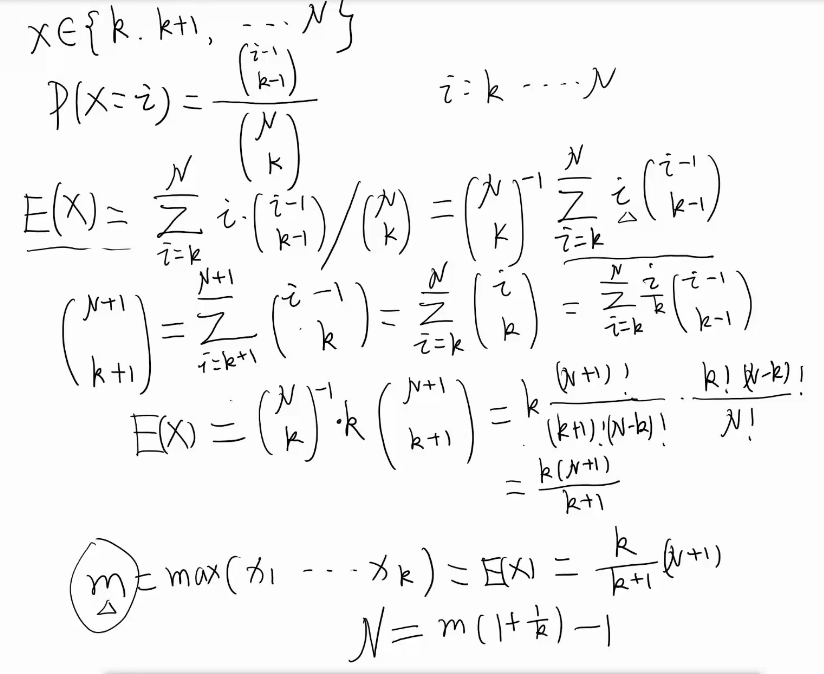 x∈{k. k+1, ···· N}
P(X=i) = \frac{\binom{i-1}{k-1}}{\binom{N}{k}}    i=k ····· N
E(X) = \sum_{i=k}^{N} i·\binom{i-1}{k-1} / \binom{N}{k} = \binom{N}{k}^{-1} \sum_{i=k}^{N} i \binom{i-1}{k-1}
\binom{N+1}{k+1} = \sum_{i=k+1}^{N+1} \binom{i-1}{k} = \sum_{i=k}^{N} \binom{i}{k} = \sum_{i=k}^{N} \frac{i}{k} \binom{i-1}{k-1}
E(X) = \binom{N}{k}^{-1}·k \binom{N+1}{k+1} = k \frac{(N+1)!}{(k+1)!(N-k)!} · \frac{k!(N-k)!}{N!}
= \frac{k(N+1)}{k+1}
m = max(x_1 ··· x_k) = E(X) = \frac{k}{k+1}(N+1)
N = m(1+\frac{1}{k})-1